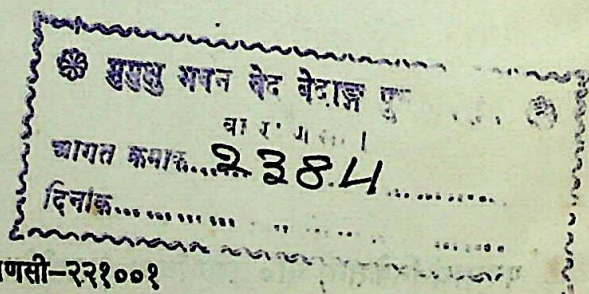 मुमुक्षु भवन वेद वेदाङ्ग पु
वा रा णसी ।
आगत क्रमाक......2384............
दिनांक...........
णसी-२२१००१